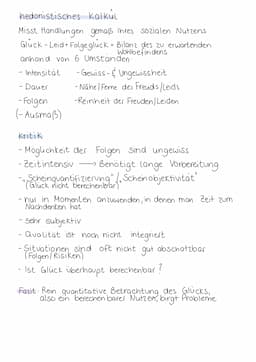 hedonistisches Kalkül
Misst Handlungen gemäß ihres sozialen Nutzens
Glück - Leid + Folgeglück = Bilanz des zu erwartenden
Wohlbefindens
anhand von 6 Umständen
- Intensität - Gewiss- & Ungewissheit
- Dauer - Nähe/Ferne des Freuds/Leids
- Folgen - Reinheit der Freuden/Leiden
(- Ausmaß)
Kritik
- Möglichkeit der Folgen sind ungewiss
- Zeitintensiv → Benötigt lange Vorbereitung
- „Scheinquantifizierung" / „Scheinobjektivität"
(Glück nicht berechenbar)
- nur in Momenten anzuwenden, in denen man Zeit zum
Nachdenken hat
- sehr subjektiv
- Qualität ist noch nicht integriert
- Situationen sind oft nicht gut abschätzbar
(Folgen/Risiken)
- Ist Glück überhaupt berechenbar?
Fazit: Rein quantitative Betrachtung des Glücks,
also ein berechenbarer Nutzen, birgt Probleme